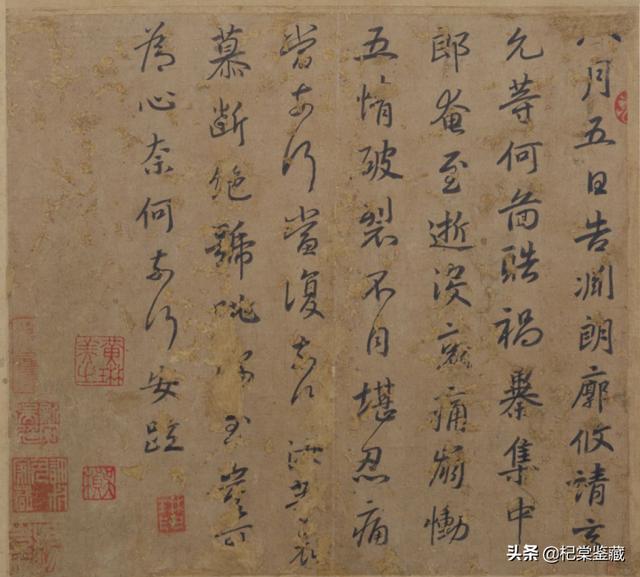 八月五日告淵朗廓攸靖玄
允等何圖酷禍暴集中
郎奄至逝没哀痛崩慟
五情破裂不自堪忍痛
當奈何當復奈何汝等哀
慕斷絶號咷深至豈可
為心奈何奈何安疏
黄琳美之
头条 @杞棠鉴藏